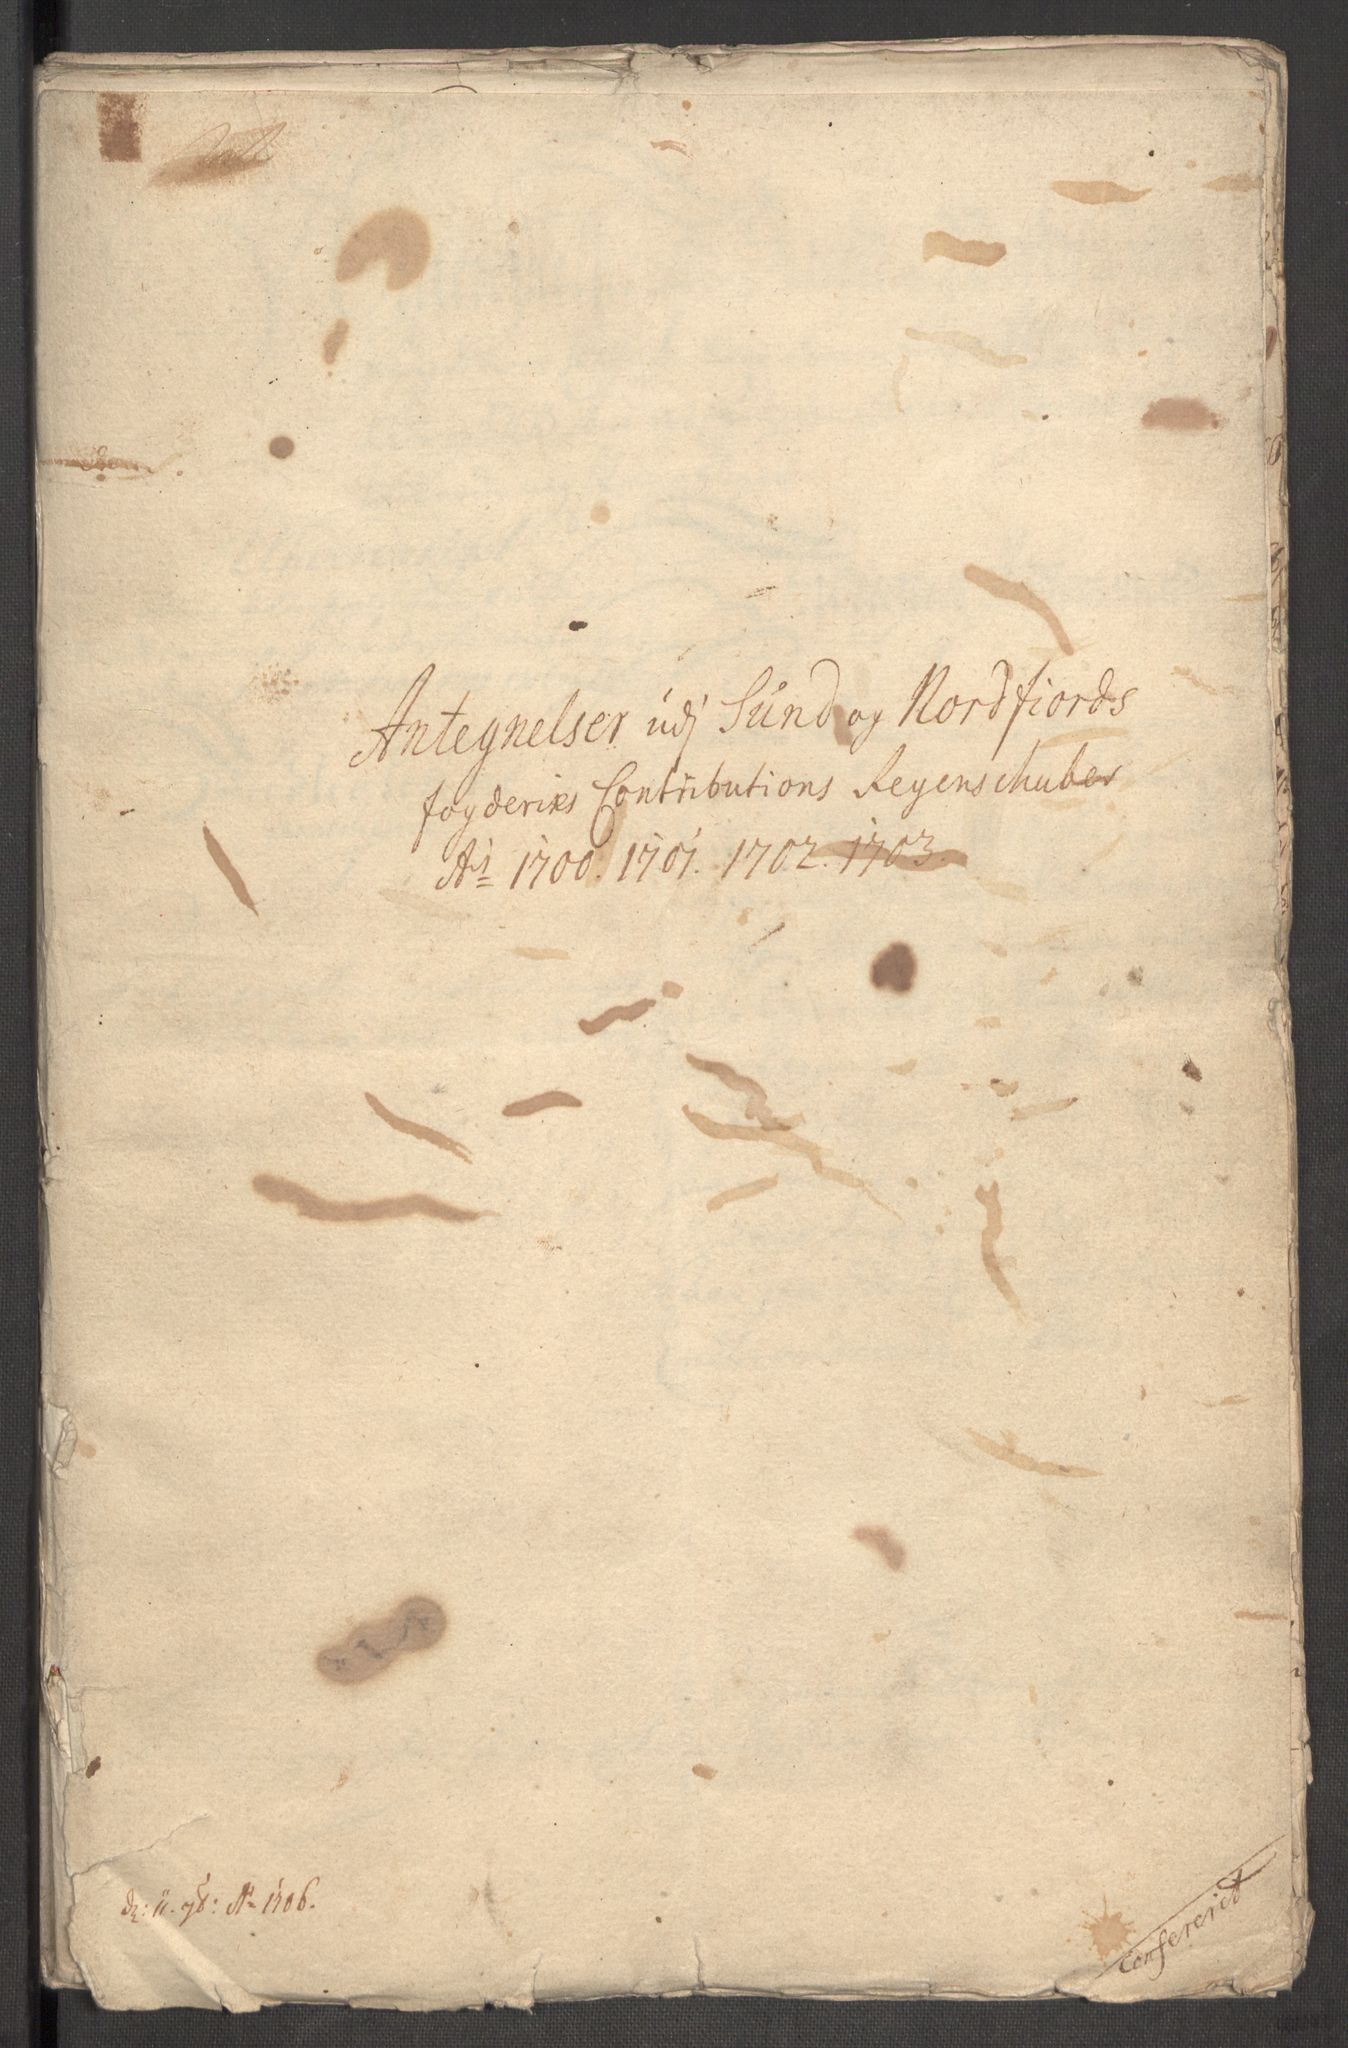 Antegnelser udj Sünd og Nordfiords
fogderies Contributions Regenschaber
Aö 1700. 1701. 1702. 1703.
d: 11. 7b: Aö 1706.
Confererit